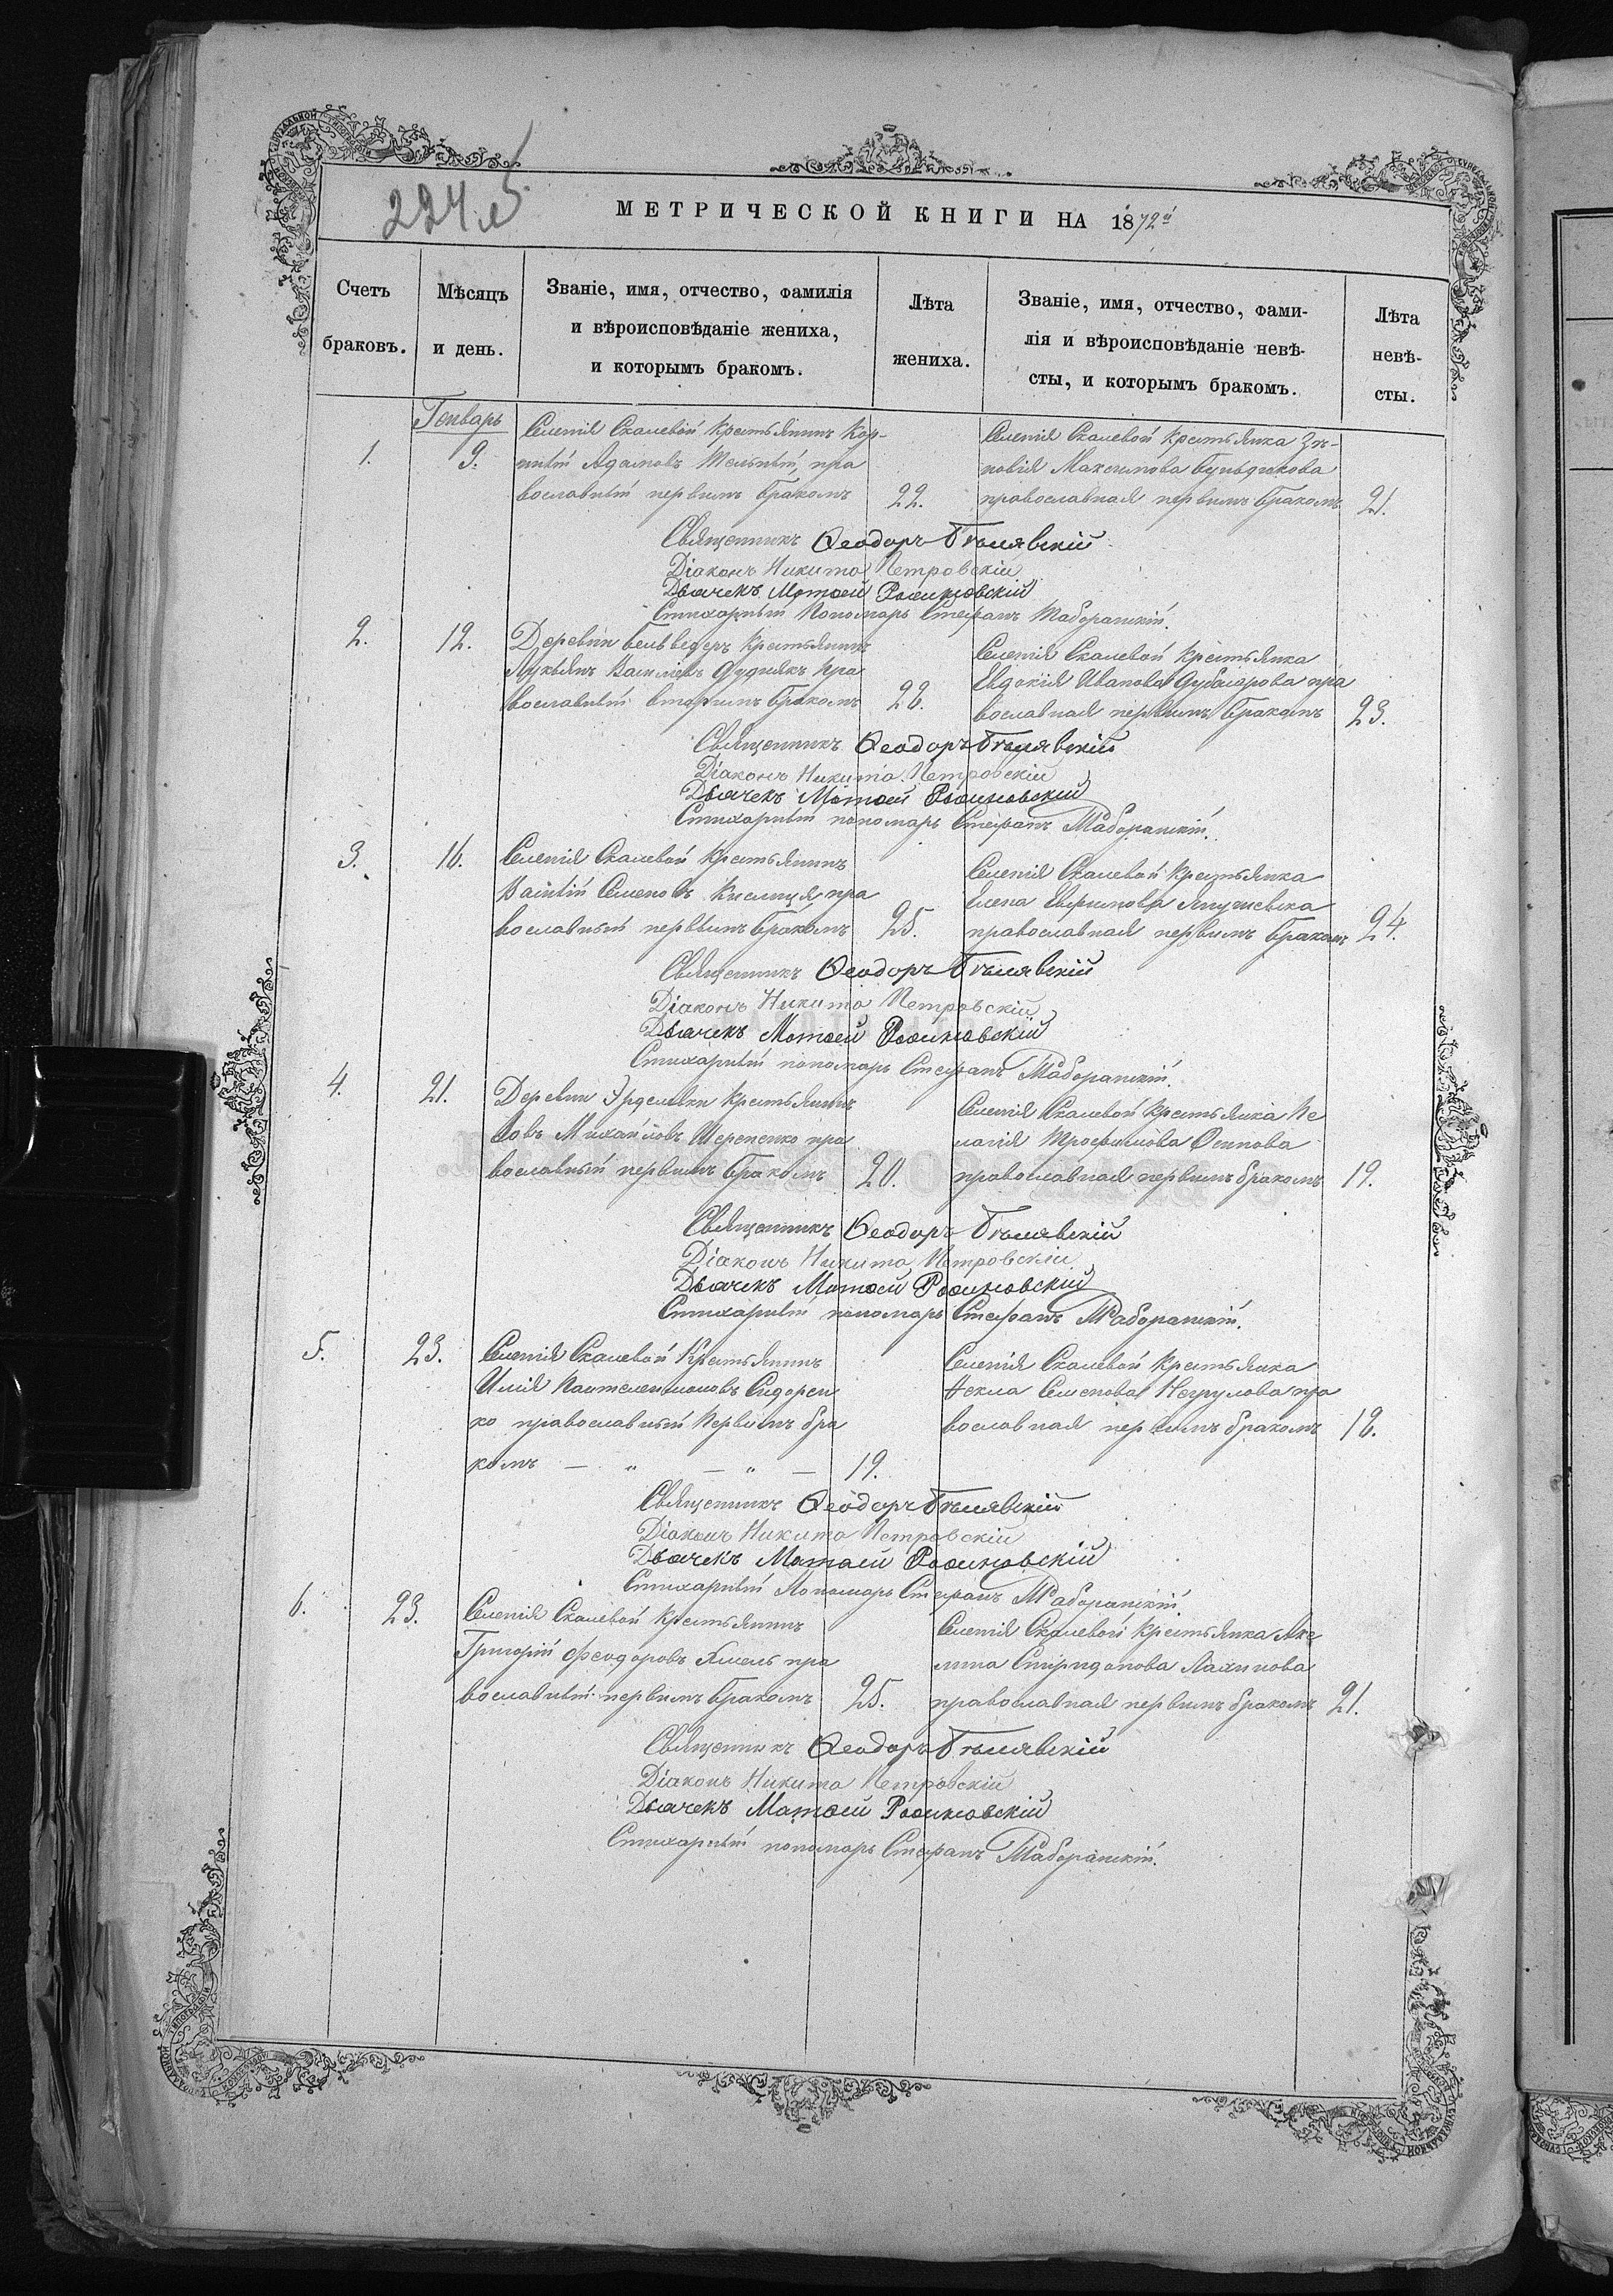 224
МЕТРИЧЕСКОЙ КНИГИ НА 1872й
Счетъ браковъ.
Мѣсяцъ и день.
Званіе, имя, отчество, фамилія
и вѣроисповѣданіе жениха,
и которымъ бракомъ.
Лѣта жениха.
Званіе, имя, отчество, фами-
лія и вѣроисповѣданіе невѣ-
сты, и которымъ бракомъ.
Лѣта невѣ-
сты.
Генварь
1.
9.
Селенія Скалевой крестьянинъ Кор-
нилій Адамовъ пра
вославный первымъ бракомъ
22.
Селенія Скалевой крестьянка Зи-
новія Максимова
православная первымъ бракомъ
21.
Священникъ Ѳеодоръ Бѣлявскій
Діаконъ Никита Петровскій
Дьячекъ Матѳей
Стихарный Пономарь Стефанъ
2.
12.
Деревни Бельведеръ крестьянинъ
Лукьянъ Васильевъ Дудникъ пра
вославный вторымъ бракомъ
22.
Селенія Скалевой крестьянка
Евдокія Иванова пра
вославная первымъ бракомъ
23.
Священникъ Ѳеодоръ Бѣлявскій
Діаконъ Никита Петровскій
Дьячекъ Матѳей
Стихарный пономарь Стефанъ
3.
16.
Селенія Скалевой крестьянинъ
Василій Семеновъ Кислиця пра
вославный первымъ бракомъ
25.
Селенія Скалевой крестьянка
Елена Евфимова
православная первымъ бракомъ
24.
Священникъ Ѳеодоръ Бѣлявскій
Діаконъ Никита Петровскій
Дьячекъ Матѳей
Стихарный пономарь Стефанъ
4.
21.
Деревни Эрделевки крестьянинъ
Іовъ Михайловъ пра
вославный первымъ бракомъ
20.
Селенія Скалевой крестьянка Пе
лагія Трофимова Осипова
православная первымъ бракомъ
19.
Священникъ Ѳеодоръ Бѣлявскій
Діаконъ Никита Петровскій
Дьячекъ Матѳей
Стихарный пономарь Стефанъ
5.
23.
Селенія Скалевой крестьянинъ
Илія Пантелеимоновъ Сидорен
ко православный первымъ бра
комъ — „ — „ —
19.
Селенія Скалевой крестьянка
Ѳекла Семенова Негрулова пра
вославная первымъ бракомъ
18.
Священникъ Ѳеодоръ Бѣлявскій
Діаконъ Никита Петровскій
Дьячекъ Матѳей
Стихарный Пономарь Стефанъ
6.
23.
Селенія Скалевой крестьянинъ
Григорій Феодоровъ пра
вославный первымъ бракомъ
25.
Селенія Скалевой крестьянка Аке
лина Спиридонова
православная первымъ бракомъ
21.
Священникъ Ѳеодоръ Бѣлявскій
Діаконъ Никита Петровскій
Дьячекъ Матѳей
Стихарный пономарь Стефанъ